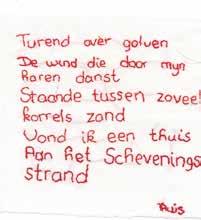 Turend over golven
De wind die door myn
haren danst
Staande tussen zoveel
korrels zand
Vond ik een thuis
Aan het Schevenings
strand
Thuis